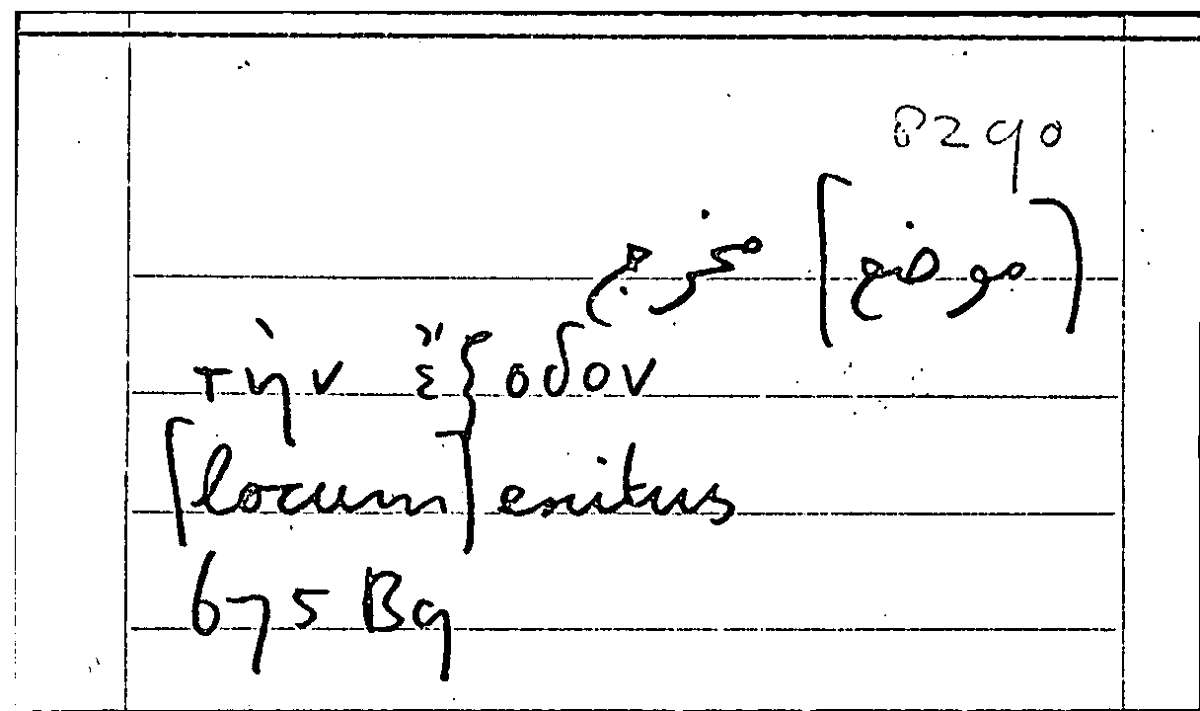 0290
[موضع] مخرج
τὴν ἔξοδον
[locum] exitus
675 B9